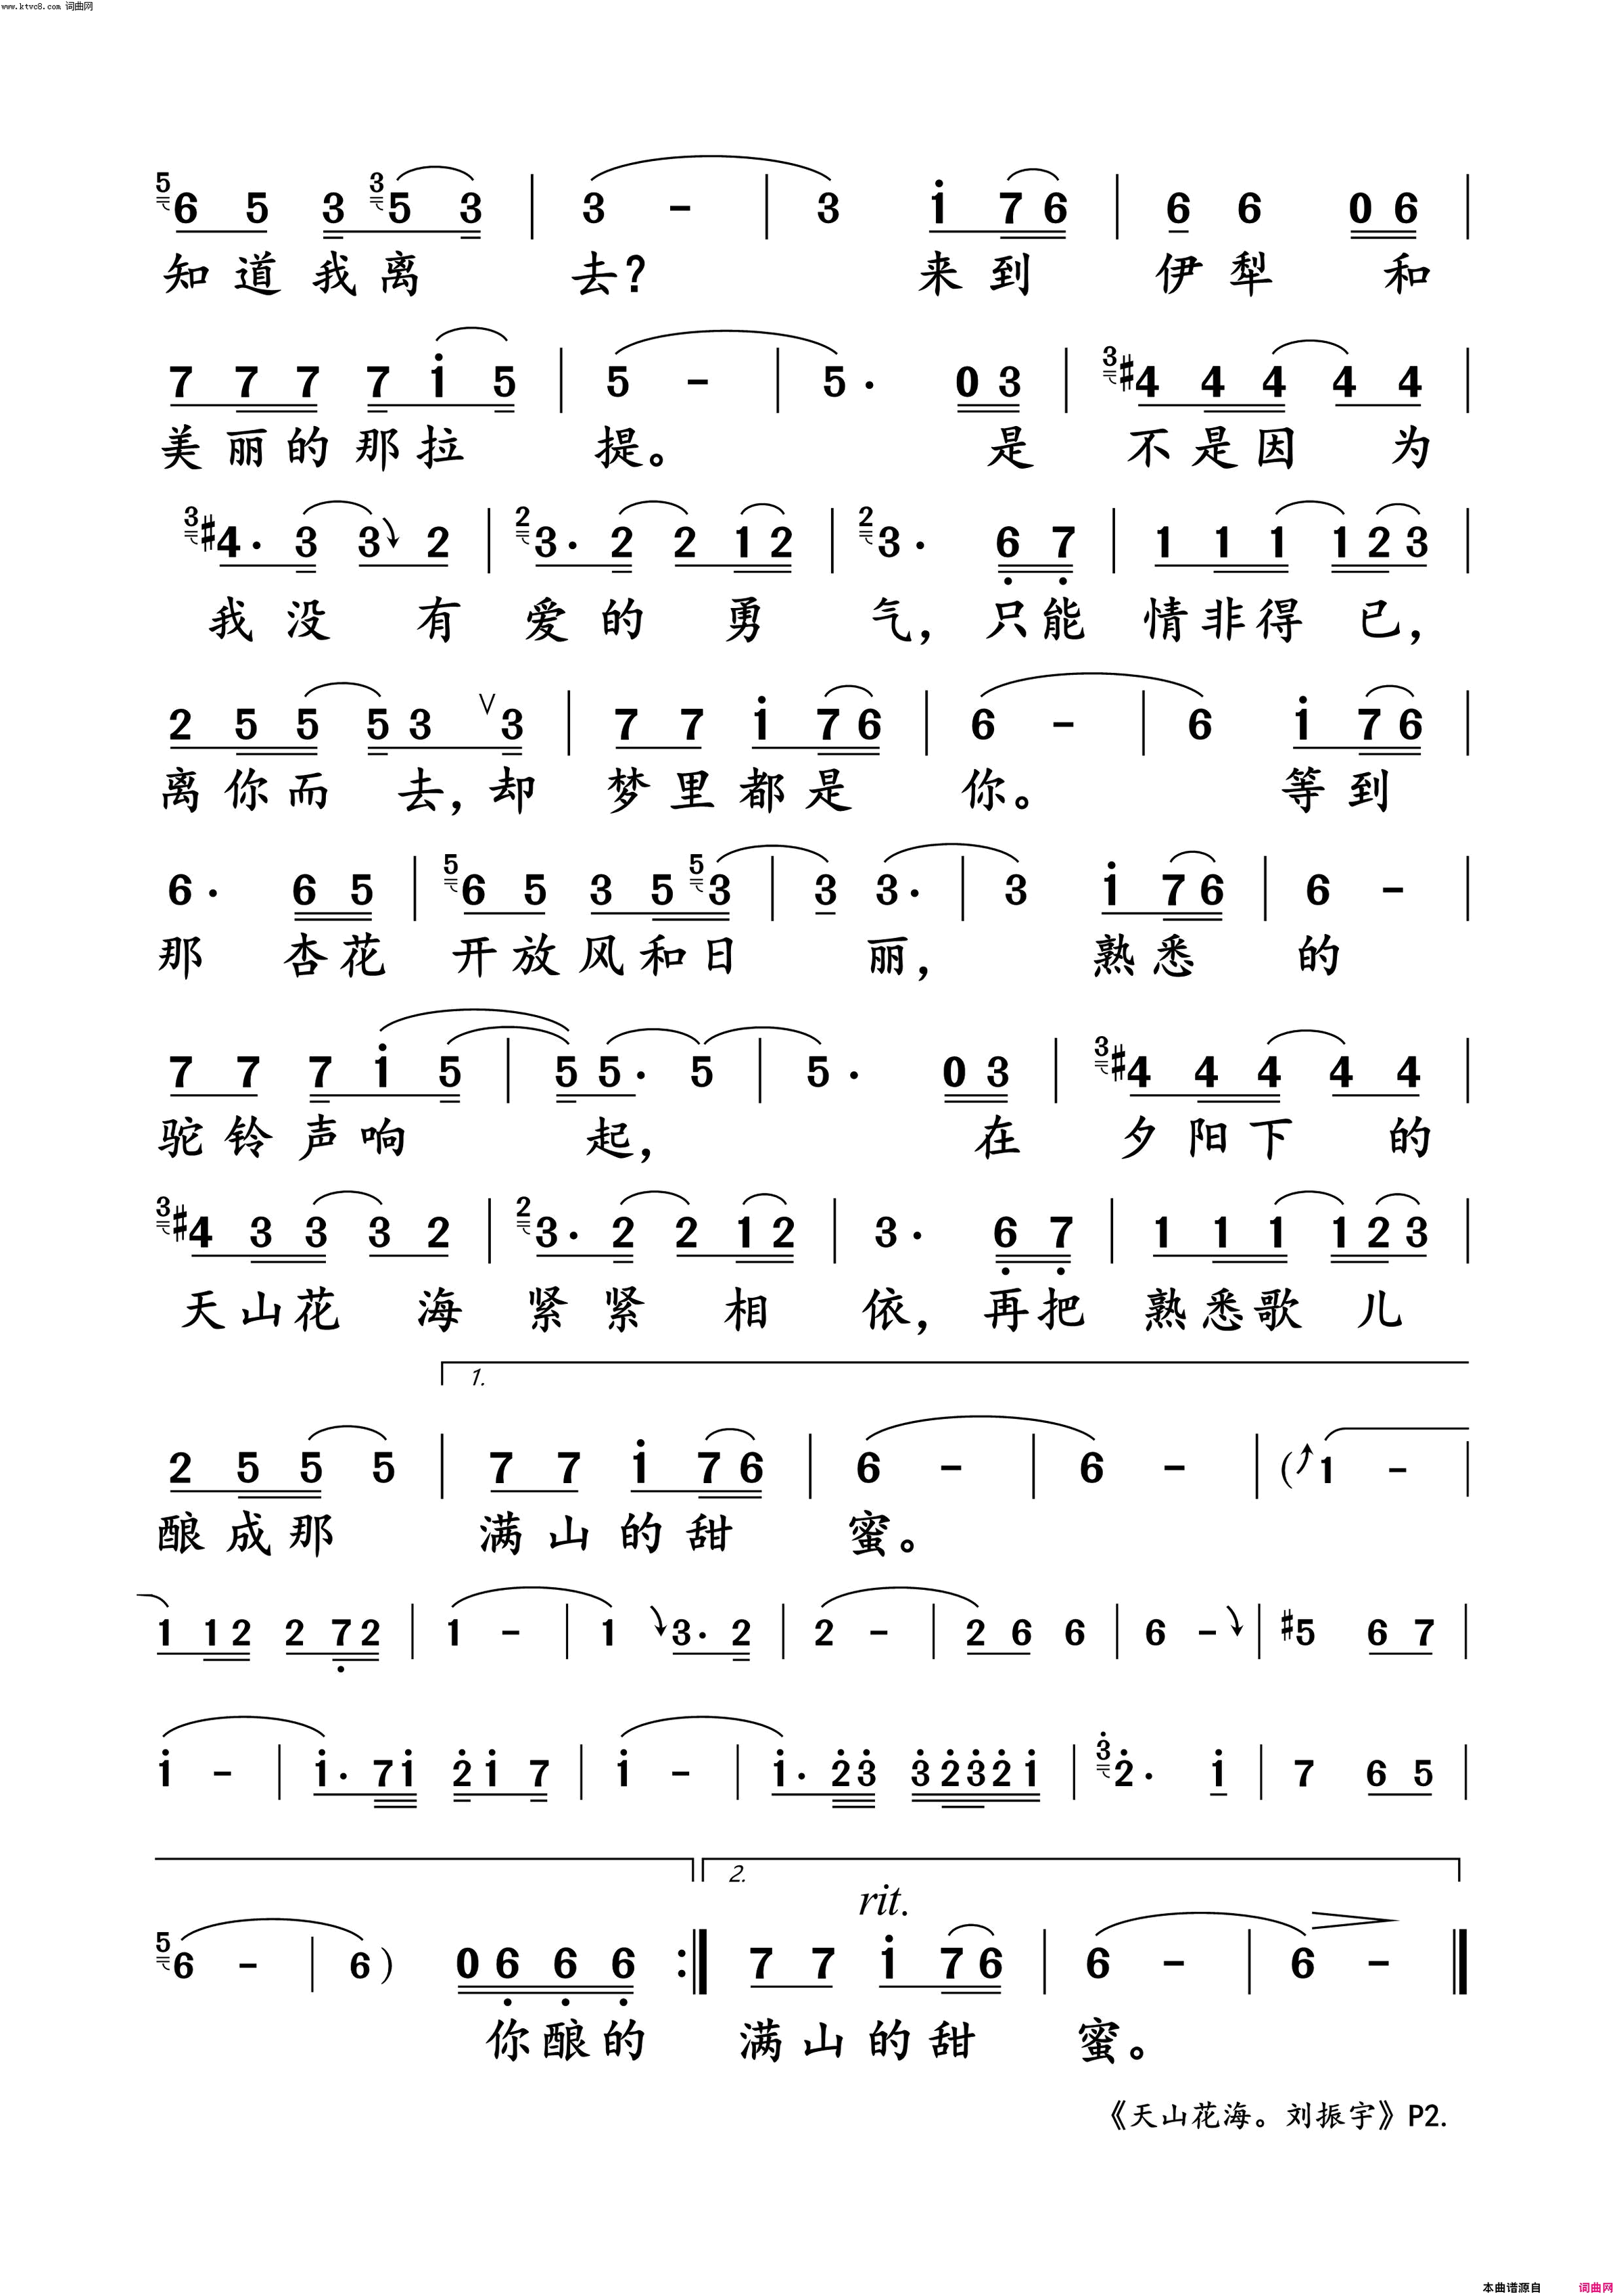 www.ktvc8.com 词曲网
5 6 5 3 3 5 3 | 3 - | 3 i 7 6 | 6 6 0 6 |
知道我离 去? 来到 伊犁 和
7 7 7 7 i 5 | 5 - | 5. 0 3 | 3 #4 4 4 4 4 |
美丽的那拉 提。 是 不是因 为
3 #4. 3 3 2 | 2 3. 2 2 1 2 | 2 3. 6 7 | 1 1 1 1 2 3 |
我没 有 爱的 勇 气, 只能 情非得 已,
2 5 5 5 3 V 3 | 7 7 i 7 6 | 6 - | 6 i 7 6 |
离你而 去, 却 梦里都是 你。 等到
6. 6 5 | 5 6 5 3 5 5 3 | 3 3. | 3 i 7 6 | 6 - |
那 杏花 开放风和日 丽, 熟悉 的
7 7 7 i 5 | 5 5. 5 | 5. 0 3 | 3 #4 4 4 4 4 |
驼铃声响 起, 在 夕阳下 的
3 #4 3 3 3 2 | 2 3. 2 2 1 2 | 3. 6 7 | 1 1 1 1 2 3 |
天山花 海 紧紧 相 依, 再把 熟悉歌 儿
1.
2 5 5 5 | 7 7 i 7 6 | 6 - | 6 - | ( 1 - |
酿成那 满山的甜 蜜。
1 1 2 2 7 2 | 1 - | 1 3. 2 | 2 - | 2 6 6 | 6 - | #5 6 7 |
i - | i. 7 i 2 i 7 | i - | i. 2 3 3 2 3 2 i | 3 2. i | 7 6 5 |
2.
rit.
5 6 - | 6 ) 0 6 6 6 :| 7 7 i 7 6 | 6 - | 6 - |
你酿的 满山的甜 蜜。
《天山花海。刘振宇》P2.
本曲谱源自 词曲网